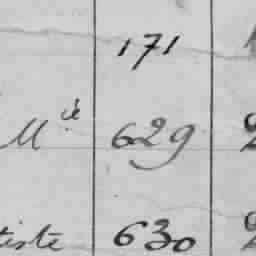 171
M.ie 629
tiste 630